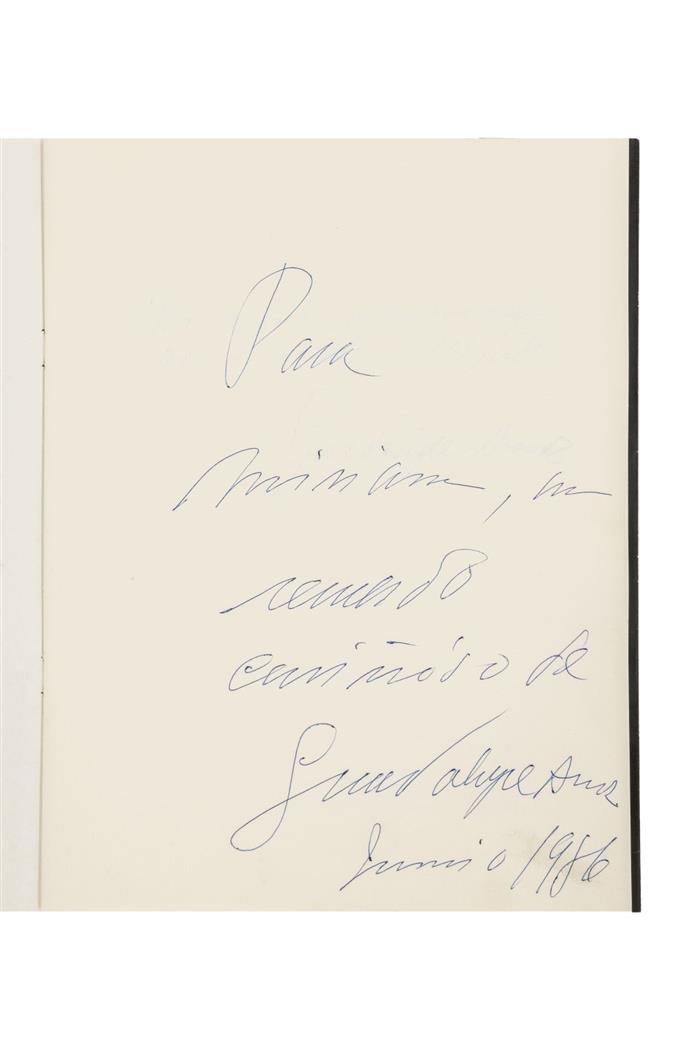 Para
Miriam, un
recuerdo
cariñoso de
Guadalupe Amor
Junio 1986